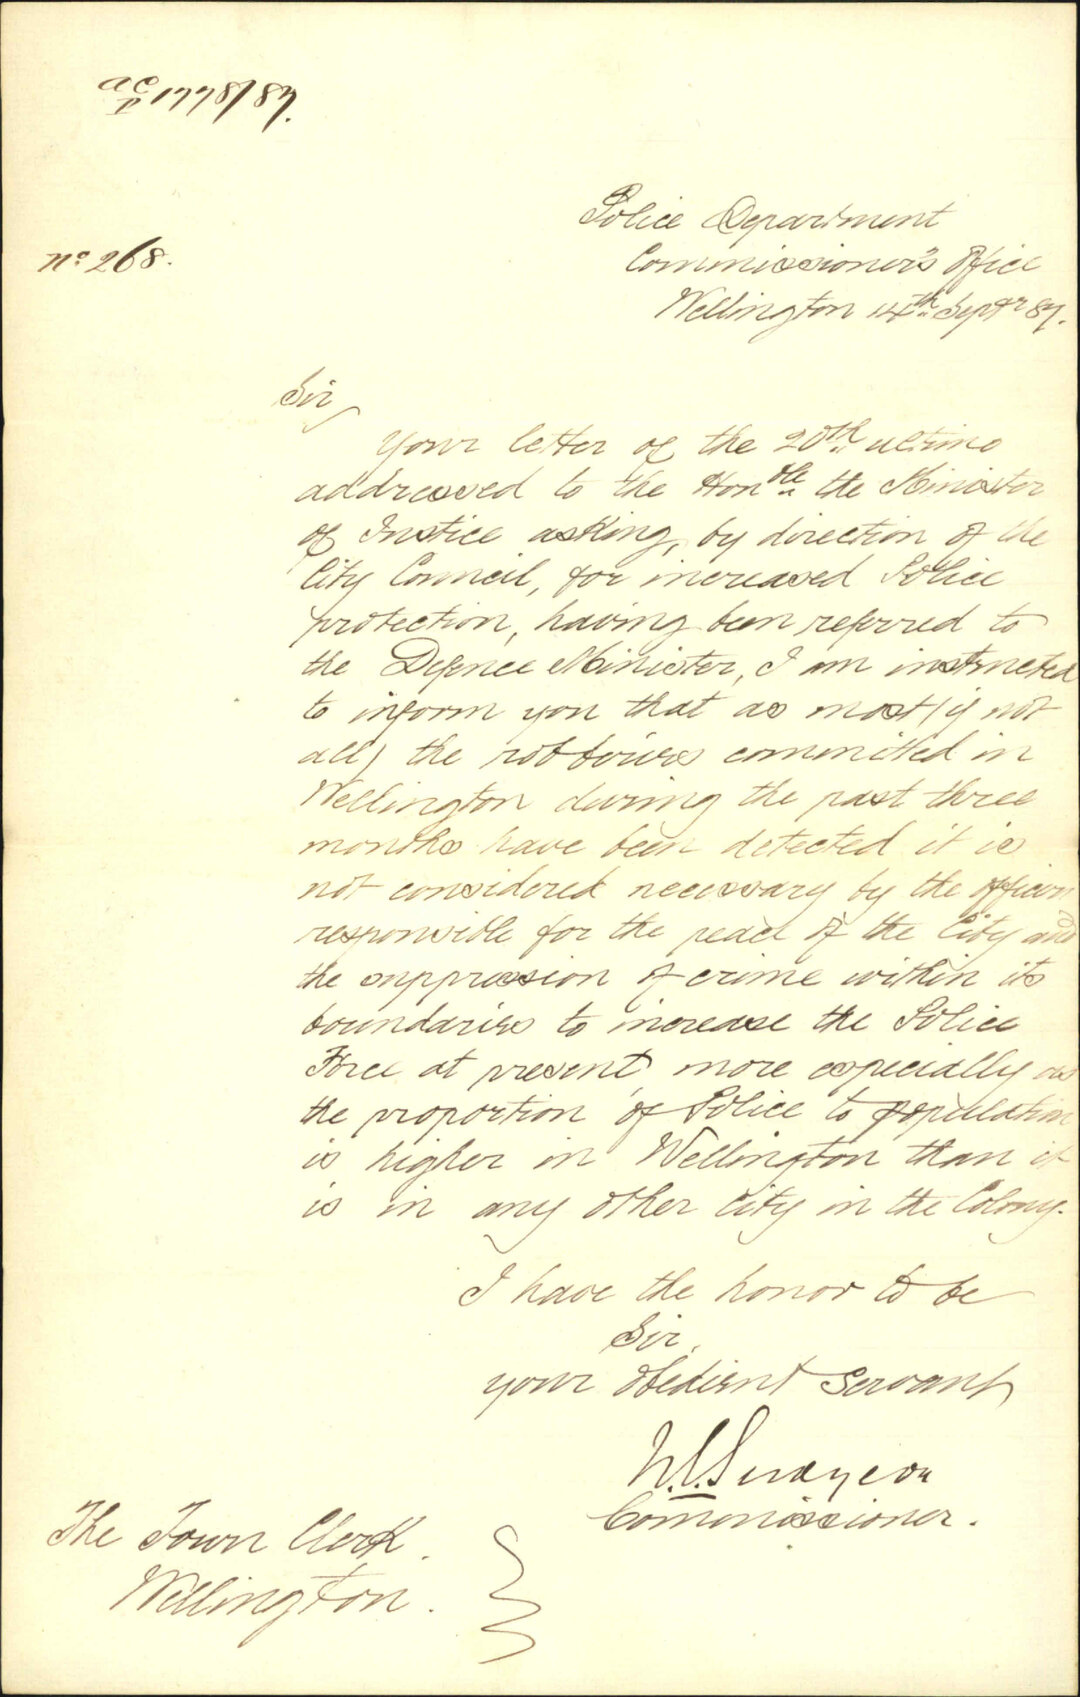 1778/87.
No 268.
Police Department
Commissioner's Office
Wellington 14th Septr 87.
Sir
Your letter of the 20th ultimo
addressed to the Honble the Minister
of Justice asking, by direction of the
City Council, for increased Police
protection, having been referred to
the Defence Minister, I am instructed
to inform you that as most (if not
all) the robberies committed in
Wellington during the past three
months have been detected it is
not considered necessary by the officers
responsible for the peace of the City and
the suppression of crime within its
boundaries to increase the Police
Force at present, more especially as
the proportion of Police to population
is higher in Wellington than it
is in any other City in the Colony.
I have the honor to be
Sir,
your obedient servant
Commissioner.
The Town Clerk.
Wellington.